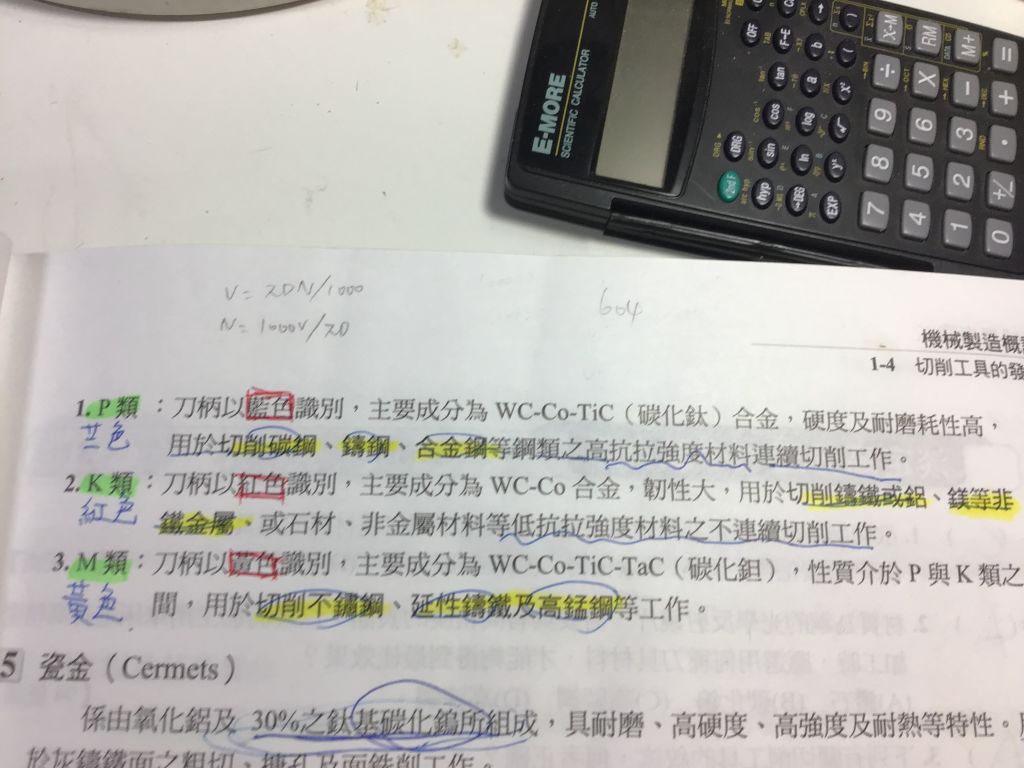 E-MORE
SCIENTIFIC CALCULATOR
AUTO
OFF F-E b ( X→M RM M+ =
tan a x² ÷ X − +
DRG cos log 9 6 3 •
2nd F sin ln yˣ 8 5 2 +/−
hyp →DEG EXP 7 4 1 0
V = πDN/1000
N = 1000V/πD
604
機械製造概
1-4 切削工具的發
1. P 類：刀柄以藍色識別，主要成分為 WC-Co-TiC（碳化鈦）合金，硬度及耐磨耗性高，
用於切削碳鋼、鑄鋼、合金鋼等鋼類之高抗拉強度材料連續切削工作。
2. K 類：刀柄以紅色識別，主要成分為 WC-Co 合金，韌性大，用於切削鑄鐵或鋁、鎂等非
紅色
鐵金屬、或石材、非金屬材料等低抗拉強度材料之不連續切削工作。
3. M 類：刀柄以黃色識別，主要成分為 WC-Co-TiC-TaC（碳化鉭），性質介於 P 與 K 類之
黃色
間，用於切削不鏽鋼、延性鑄鐵及高錳鋼等工作。
5 瓷金（Cermets）
係由氧化鋁及 30%之鈦基碳化鎢所組成，具耐磨、高硬度、高強度及耐熱等特性。
於灰鑄鐵面之粗切、搪孔及面銑削工作。